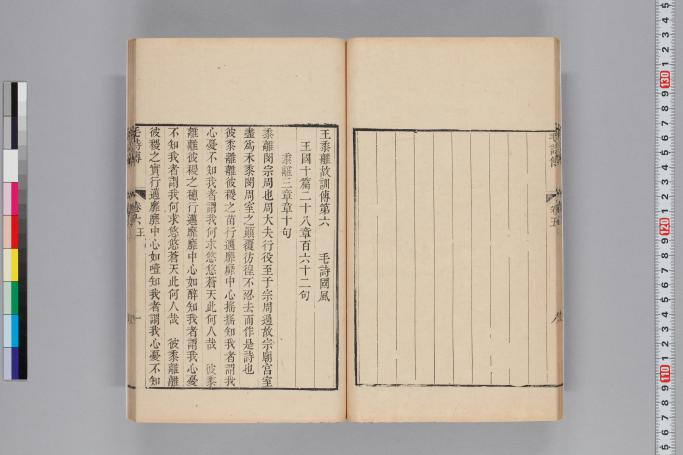 王黍離故訓傳第六　毛詩國風
王國十篇二十八章百六十二句
黍離三章章十句
黍離閔宗周也周大夫行役至于宗周過故宗廟宮室
盡為禾黍閔周室之顛覆彷徨不忍去而作是詩也
彼黍離離彼稷之苗行邁靡靡中心搖搖知我者謂我
心憂不知我者謂我何求悠悠蒼天此何人哉　彼黍
離離彼稷之穗行邁靡靡中心如醉知我者謂我心憂
不知我者謂我何求悠悠蒼天此何人哉　彼黍離離
彼稷之實行邁靡靡中心如噎知我者謂我心憂不知
毛詩傳
卷六王
一
毛詩傳
卷五
130
120
110